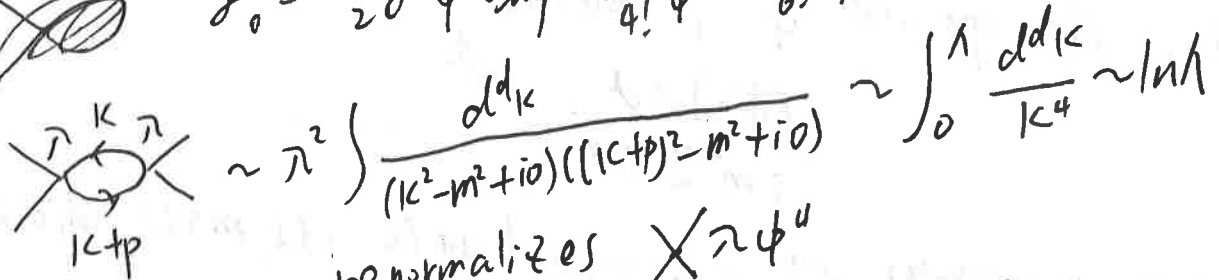 2 4!
λ k λ ~ λ² ∫ dᵈk / (k²-m²+i0)((k+p)²-m²+i0) ~ ∫₀^Λ dᵈk / k⁴ ~ lnΛ
k+p
renormalizes λφ⁴